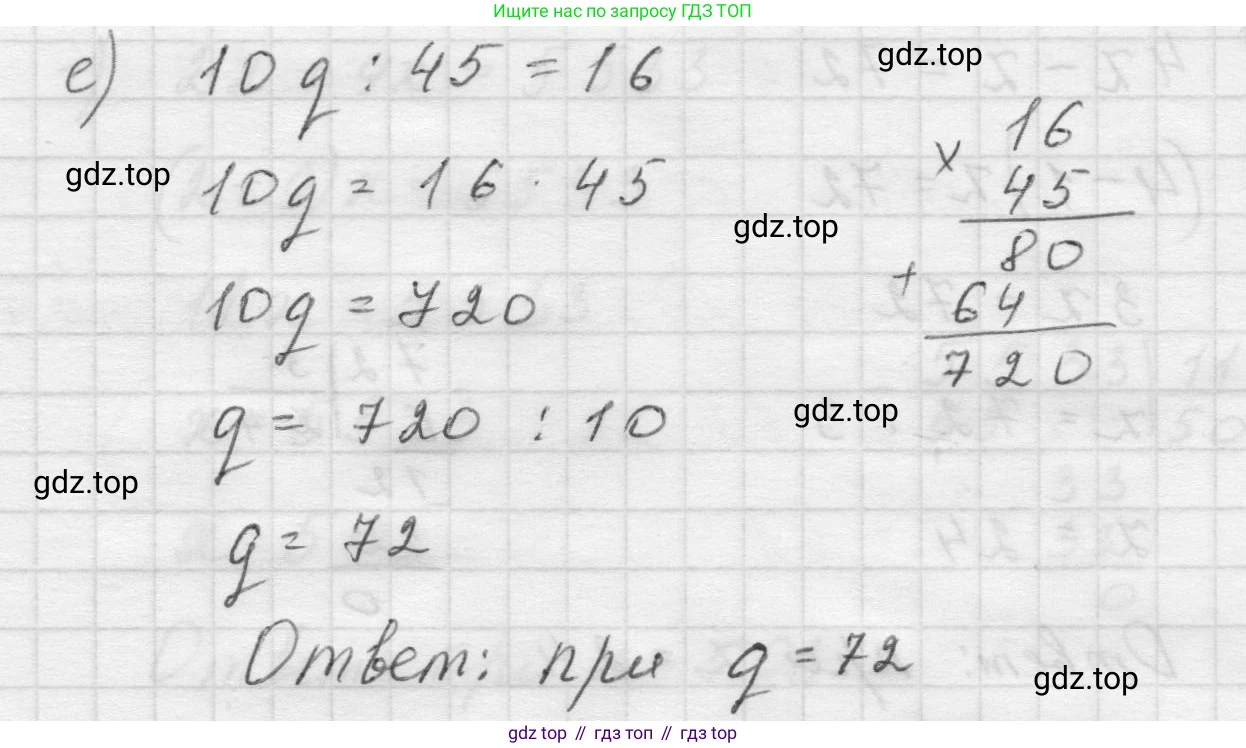 Ищите нас по запросу ГДЗ ТОП
е) 10q : 45 = 16
gdz.top
16
× 45
80
+ 64
720
gdz.top
10q = 16 · 45
gdz.top
10q = 720
q = 720 : 10
gdz.top
gdz.top
q = 72
Ответ: при q = 72
gdz.top
gdz top // гдз топ // gdz top